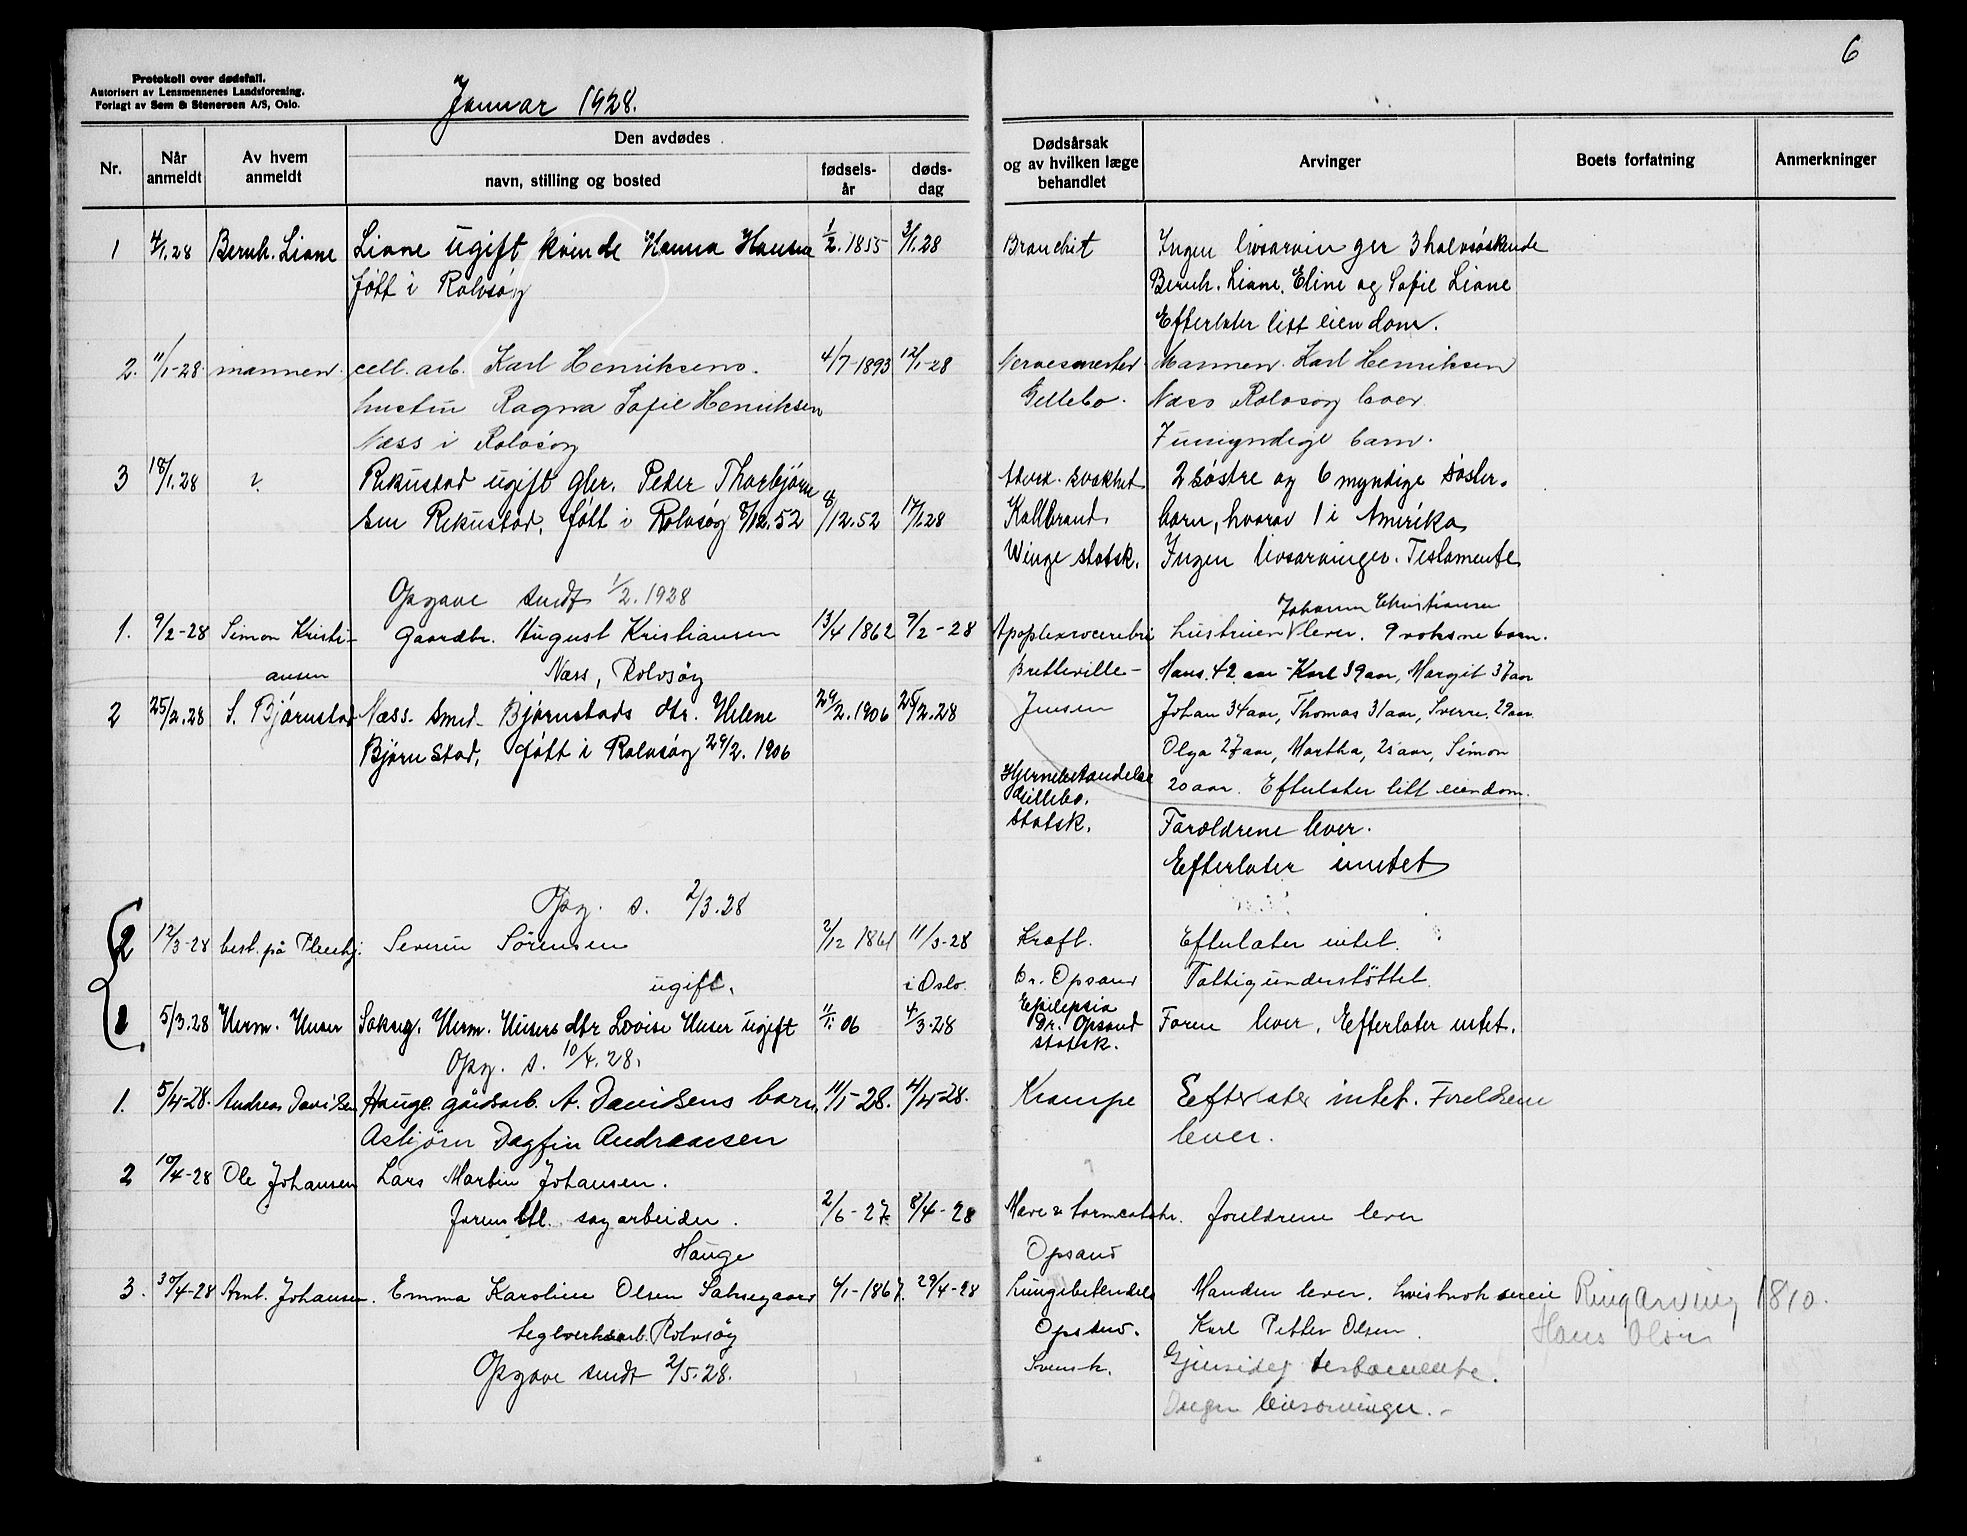 6
Protokoll over dødsfall.
Autorisert av Lensmennenes Landsforening.
Forlagt av Sem & Stenersen A/S, Oslo.
Januar 1928.
Nr.
Når anmeldt
Av hvem anmeldt
Den avdødes
navn, stilling og bosted
fødsels-år
døds-dag
Dødsårsak og av hvilken læge behandlet
Arvinger
Boets forfatning
Anmerkninger
1 4/1.28 Bernh. Liane Liane ugift kvinde Hanna Hansen 1/2.1855 3/1.28 Bronchit Ingen livsarvinger 3 halvsøskende
født i Rolvsøy Bernh. Liane, Eline og Sofie Liane
Efterlater litt eiendom.
2. 11/1-28 mannen cell. arb. Karl Henriksens 4/7-1893 12/1-28 Mannen Karl Henriksen
hustru Ragna Sofie Henriksen Gillebo. Næss Rolvsøy lever
Næss i Rolvsøy 7 umyndige barn.
3 18/1.28 Rekustad ugift gbr. Peder Thorbjørn 2 søstre og 6 myndige søster-
sen Rekustad, født i Rolvsøy 8/12.52 8/12.52 17/1.28 Kollbrand barn, hvorav 1 i Amerika
Winge statsk. Ingen livsarvinger. Testamente
Opgave sendt 1/2.1928
Johanne Christiansen
1. 9/2-28 Simon Kristi- Gaardbr. August Kristiansen 13/4 1862 9/2-28 hustruen lever. 9 voksne barn.
ansen Næss, Rolvsøy Bretteville- Hans. 42 aar - Karl 39 aar, Margit 37 aar
2 25/2.28 S. Bjørnstad Næss. Smed Bjørnstads dtr. Helene 29/2.1906 25/2.28 Jensen Johan 34 aar, Thomas 31 aar, Sverre. 29 aar
Bjørnstad, født i Rolvsøy 29/2.1906 Olga 27 aar, Martha, 25 aar, Simon
Hjernebetændelse 20 aar. Efterlater litt eiendom.
Gillebo.
statsk. Forældrene lever.
Efterlater intet
Opg. s. 2/3.28
2 12/3-28 best. på Pleiehj. Severin Sørensen 2/12 1861 11/3-28 Kræft. Efterlater intet.
ugift. i Oslo. Dr. Opsand Fattigunderstøttet.
1 5/3.28 Herm. Huser Sakseg. Herm. Husers dtr Lovise Huser ugift 11/1. 06 4/3.28 Epilepsia Dr. Opsand statsk. Faren lever. Efterlater intet.
Opg. s. 10/4.28.
1. 5/4-28. Andreas Davidsen Hauge. gårdsarb. A. Davidsens barn, 11/1-28. 4/4-28. Krampe Eefterlater intet. Foreldrene
Asbjørn Dagfin Andreassen lever.
2 10/4-28 Ole Johansen Lars Martin Johansen.
sagarbeider. 2/6-27 8/4-28 Mave & tarmcatahr. foreldrene lever
Hauge Opsand
3. 30/4-28 Arnt. Johansen. Emma Karoline Olsen Saksegaard 6/1-1867. 29/4-28 Lungebetendels Manden lever. Ringarving 1810.
teglverksarb. Rolvsøy Opsand. Karl Petter Olsen. Hans Olsen
Opgave sendt 2/5.28. Svensk. Gjensidig testamente.
Ingen livsarvinger.-